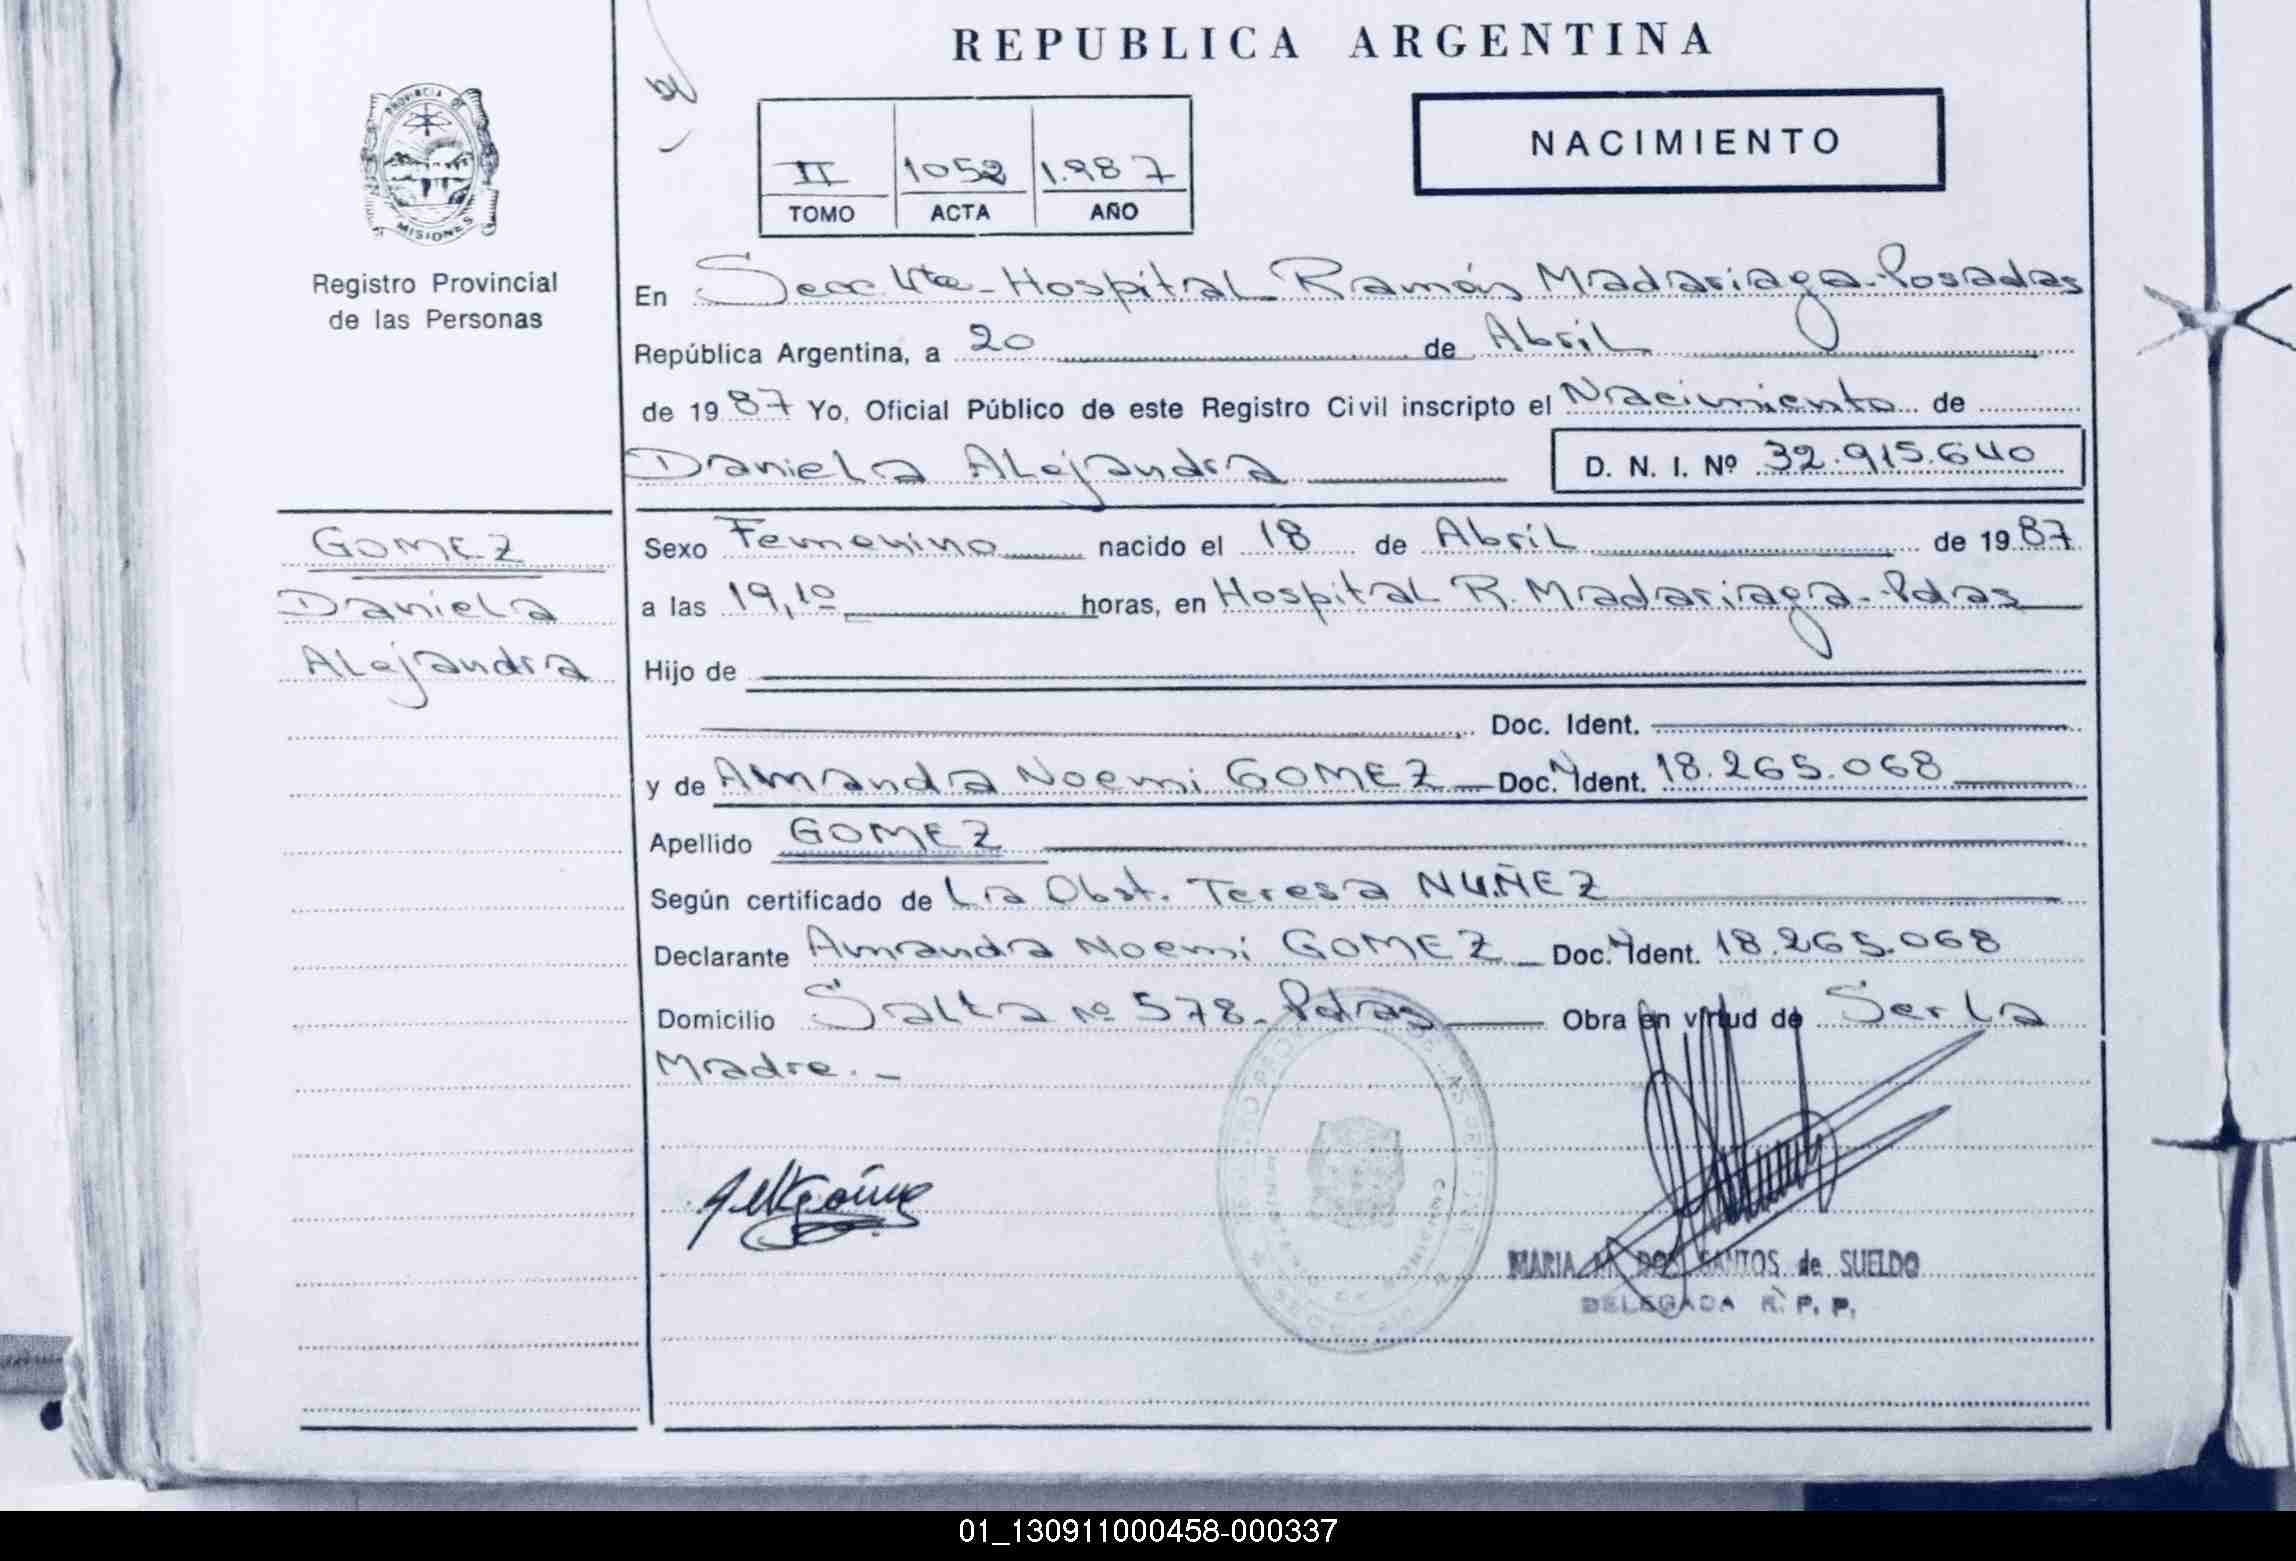 REPUBLICA ARGENTINA
PROVINCIA DE
MISIONES
Registro Provincial
de las Personas
II 1052 1.987
TOMO ACTA AÑO
NACIMIENTO
En Secc. 4ta - Hospital Ramón Madariaga - Posadas
República Argentina, a 20 de Abril
de 1987 Yo, Oficial Público de este Registro Civil inscripto el Nacimiento de
Daniela Alejandra D. N. I. Nº 32.915.640
GOMEZ
Daniela
Alejandra
Sexo Femenino nacido el 18 de Abril de 1987
a las 19,10 horas, en Hospital R. Madariaga - Pdas
Hijo de
Doc. Ident.
y de Amanda Noemi GOMEZ Doc. Ident. 18.265.068
Apellido GOMEZ
Según certificado de La Obst. Teresa NUÑEZ
Declarante Amanda Noemi GOMEZ Doc. Ident. 18.265.068
Domicilio Salta nº 578 - Pdas Obra en virtud de Ser la
Madre. -
MARIA M. DOS SANTOS de SUELDO
DELEGADA R. P. P.
01_130911000458-000337